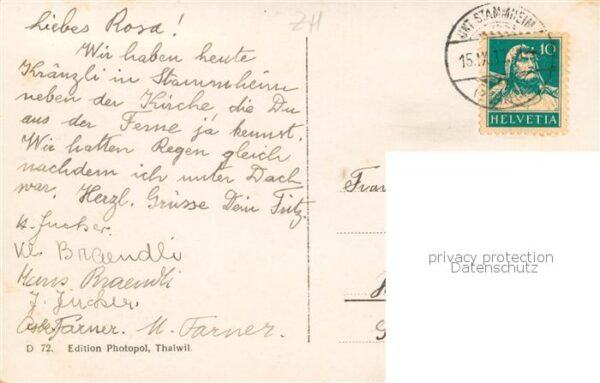 Liebes Rosa!
ZH
Wir haben heute
Kränzli in Stammheim
neben der Kirche die Du
aus der Ferne ja kennst.
Wir hatten Regen gleich
nachdem ich unter Dach
war. Herzl. Grüsse Dein Fritz.
Kl. Braendli
Hans Braendli
J.
Farner. M. Farner.
D 72. Edition Photopol, Thalwil.
UNT. STAMMHEIM
15.IX.
10
HELVETIA
Frau
privacy protection
Datenschutz